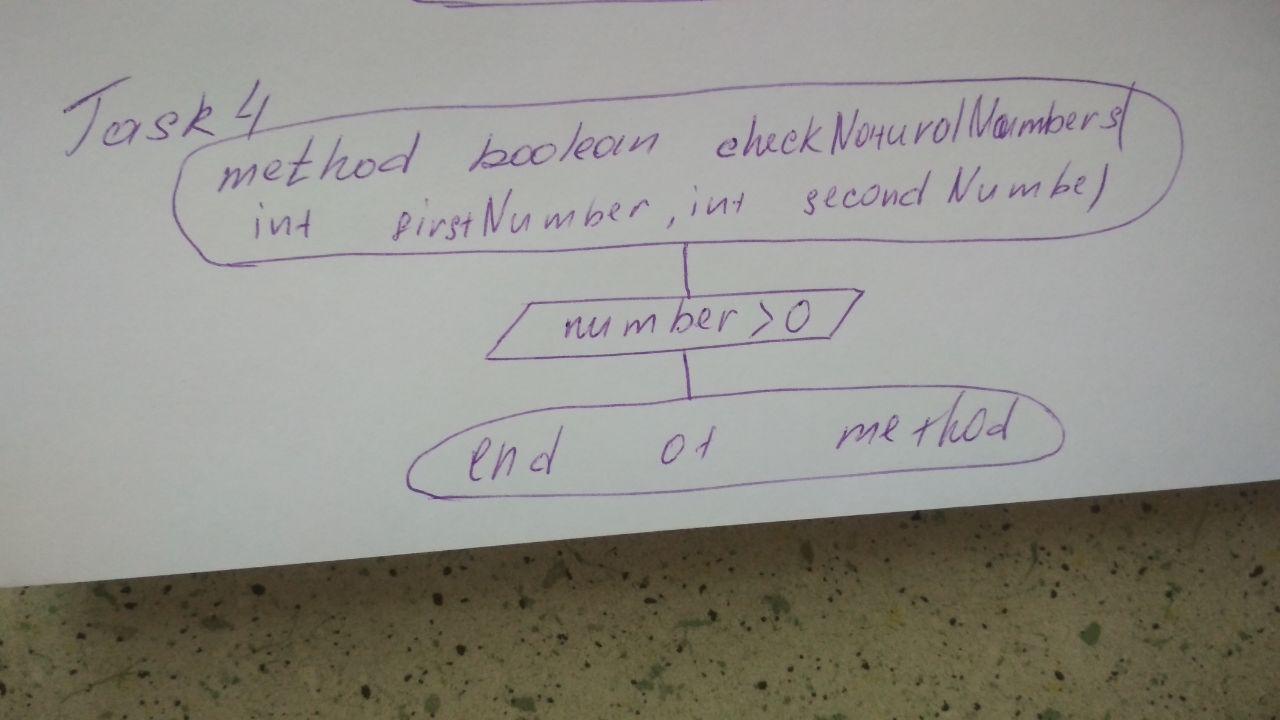 Task 4
method boolean checkNaturalNumbers(
int firstNumber, int secondNumber)
number > 0
end of method